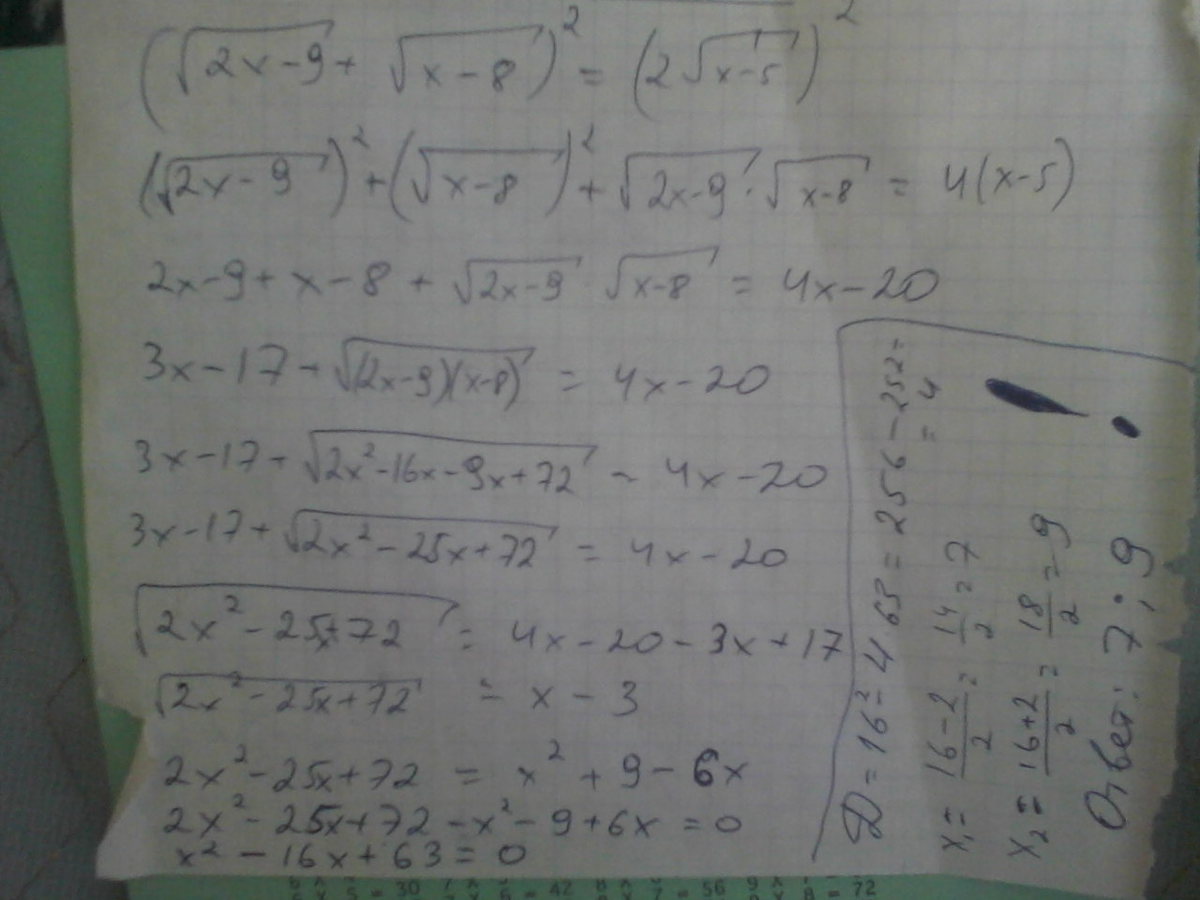 (√(2x-9) + √(x-8))² = (2√(x-5))²
(√(2x-9))² + (√(x-8))² + √(2x-9) · √(x-8) = 4(x-5)
2x-9 + x-8 + √(2x-9) √(x-8) = 4x-20
3x-17 + √((2x-9)(x-8)) = 4x-20
3x-17 + √(2x²-16x-9x+72) = 4x-20
3x-17 + √(2x²-25x+72) = 4x-20
√(2x²-25x+72) = 4x-20-3x+17
√(2x²-25x+72) = x-3
2x²-25x+72 = x²+9-6x
2x²-25x+72-x²-9+6x=0
x²-16x+63=0
D=16²-4·63=256-252=
=4
x₁= (16-2)/2 = 14/2 = 7
x₂= (16+2)/2 = 18/2 = 9
Ответ: 7; 9
!
5 = 30 7 x 6 = 42 8 x 7 = 56 9 x 8 = 72